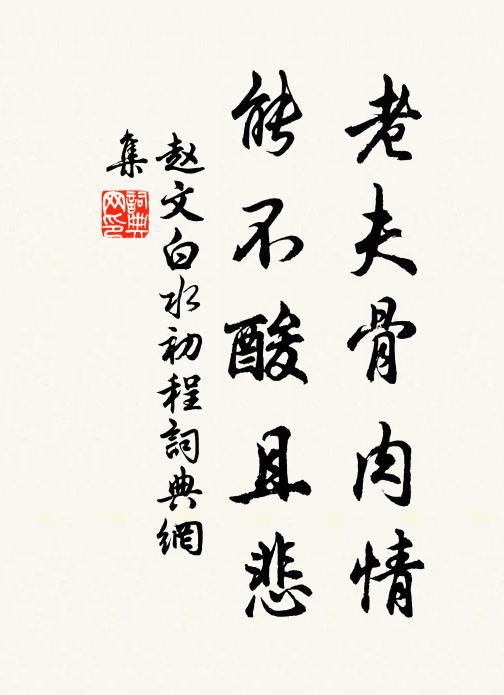 老夫骨肉情
能不酸且悲
赵文白水初程詞典網
集
詞典网印